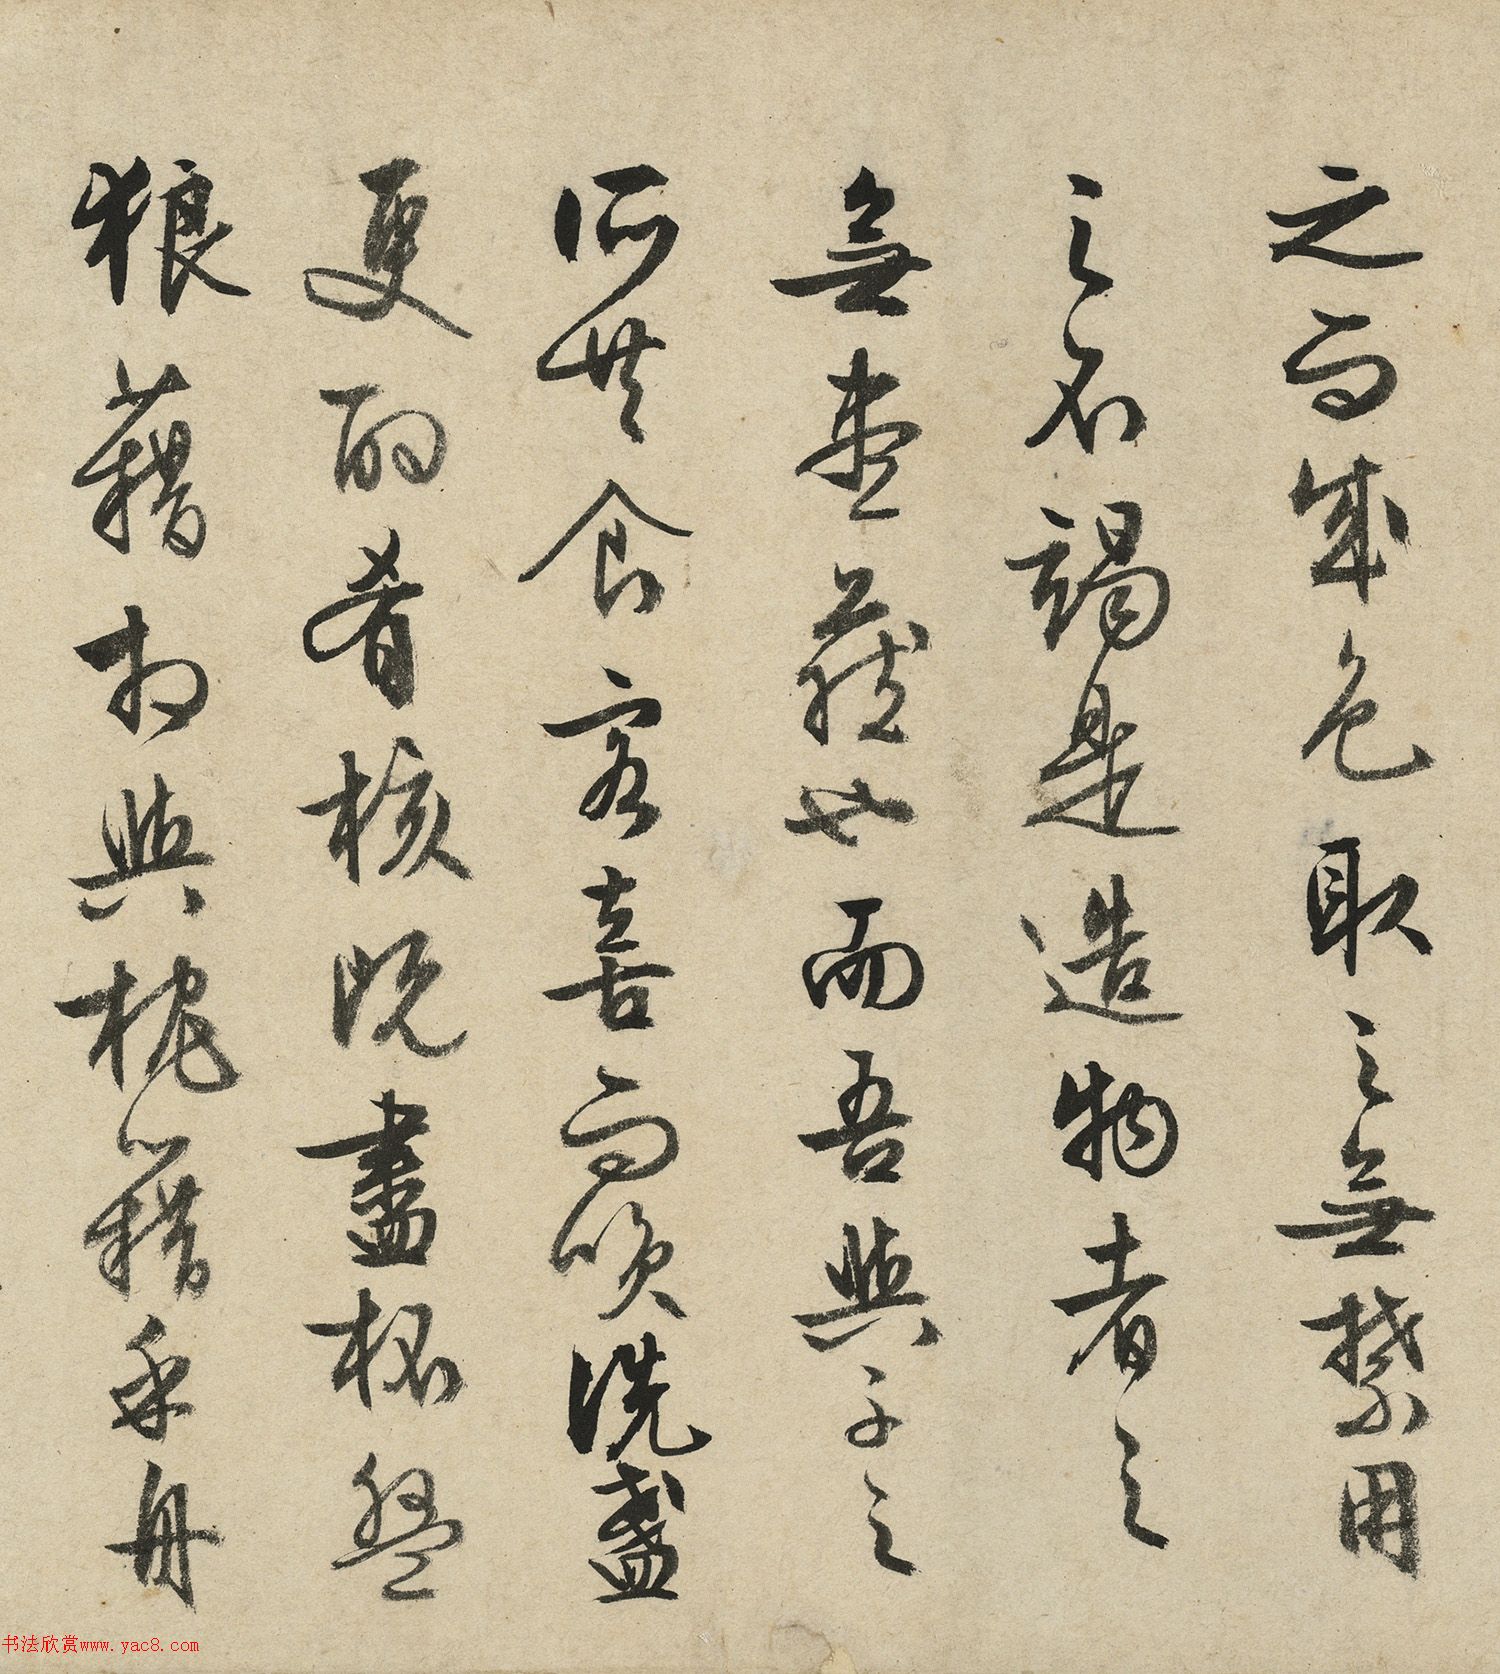 之而成色取之無禁用
之不竭是造物者之
無盡藏也而吾與子之
所共食客喜而笑洗盞
更酌肴核既盡杯盤
狼藉相與枕藉乎舟
书法欣赏www.yac8.com